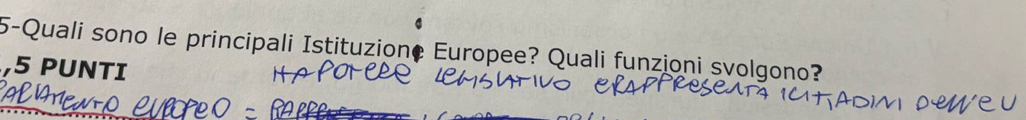 5-Quali sono le principali Istituzione Europee? Quali funzioni svolgono?
,5 PUNTI
HA POTERE LEGISLATIVO E RAPPRESENTA I CITTADINI DELL'EU
PARLAMENTO EUROPEO =